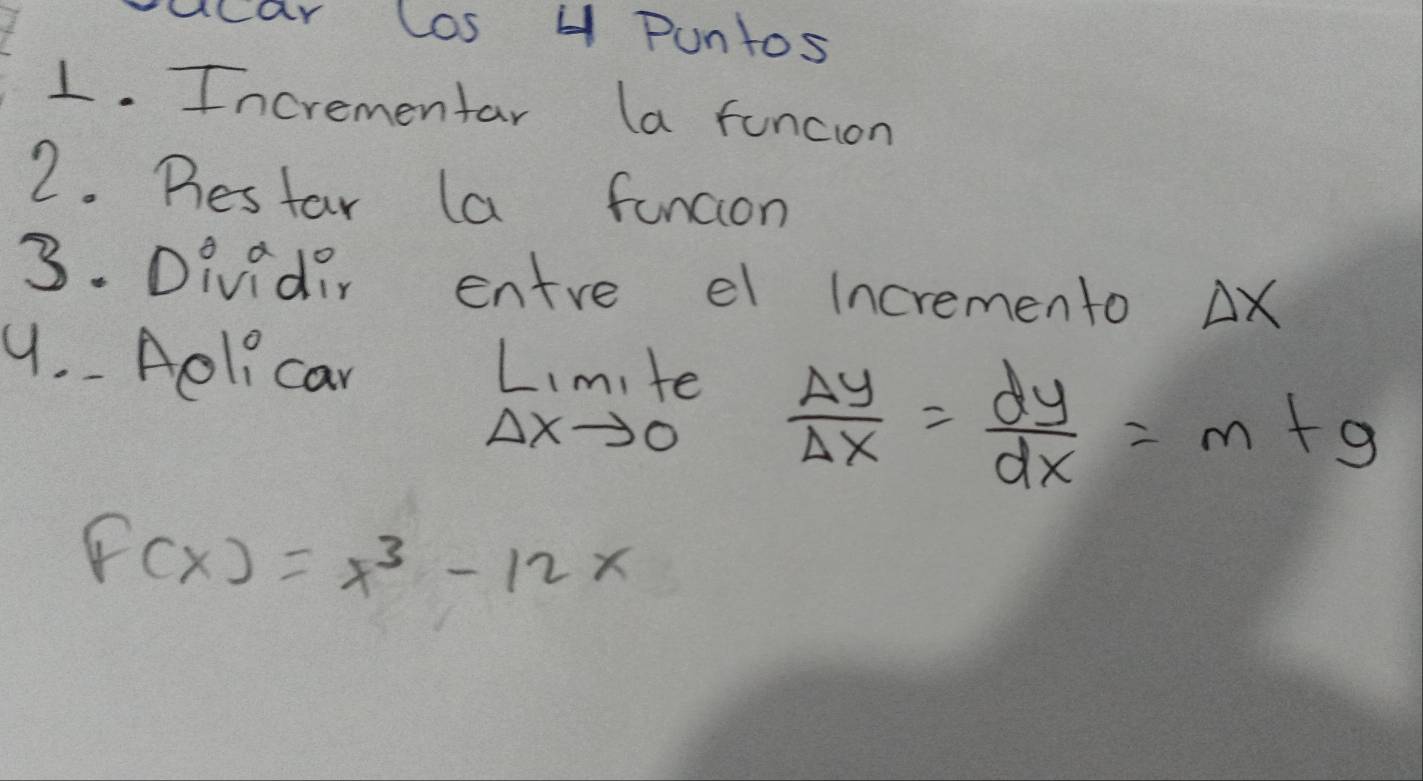 los 4 Puntos
1. Incrementar la funcion
2. Restar la funcion
3. Dividir entre el Incremento ΔX
4.- Aplicar Limite Δy/ΔX = dy/dx = m tg
ΔX→0
F(x) = x³ - 12x